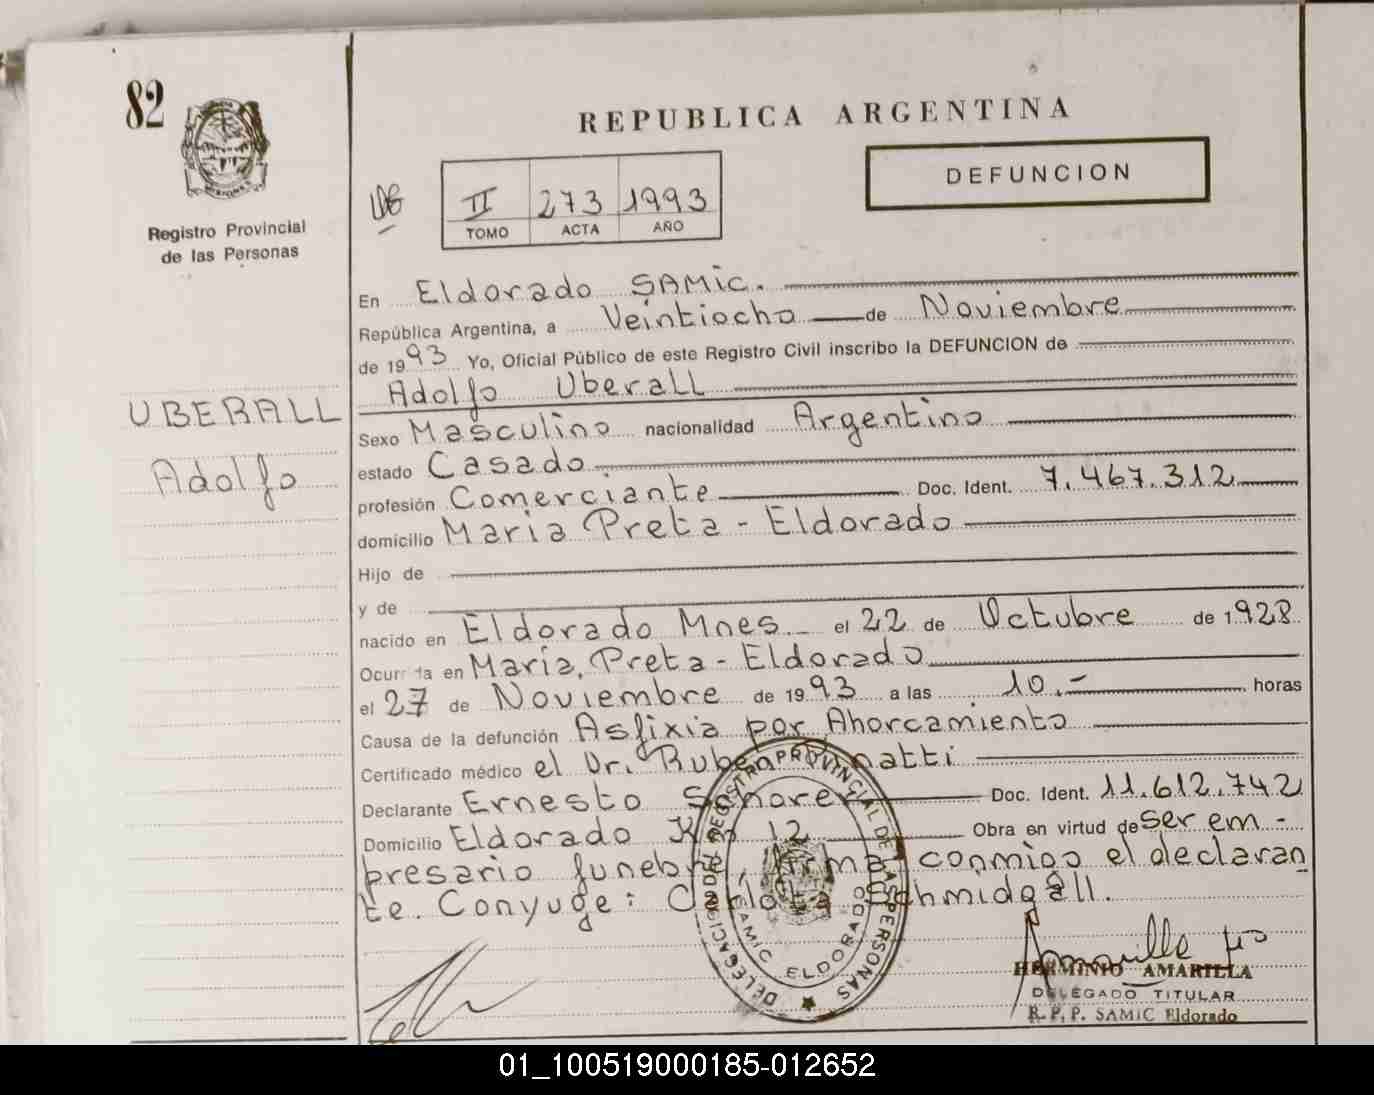 82
REPUBLICA ARGENTINA
DEFUNCION
Registro Provincial
de las Personas
II 273 1993
TOMO ACTA AÑO
En Eldorado SAMic.
República Argentina, a Veintiocho de Noviembre
de 1993 Yo, Oficial Público de este Registro Civil inscribo la DEFUNCION de
Adolfo Uberall
UBERALL
Adolfo
Sexo Masculino nacionalidad Argentino
estado Casado
profesión Comerciante Doc. Ident. 7.467.312
domicilio Maria Preta - Eldorado
Hijo de
y de
nacido en Eldorado Mnes el 22 de Octubre de 1928
Ocurrida en Maria, Preta - Eldorado
el 27 de Noviembre de 1993 a las 10.- horas
Causa de la defunción Asfixia por Ahorcamiento
Certificado médico el Dr. Ruben
Declarante Ernesto Doc. Ident. 11.612.742
Domicilio Eldorado Km 12 Obra en virtud de ser em-
presario funebre, firma conmigo el declaran
te. Conyuge: Schmidgall.
DELEGACION DEL REGISTRO PROVINCIAL DE LAS PERSONAS
SAMIC ELDORADO
HERMINIO AMARILLA
DELEGADO TITULAR
R.P.P. SAMIC Eldorado
01_100519000185-012652